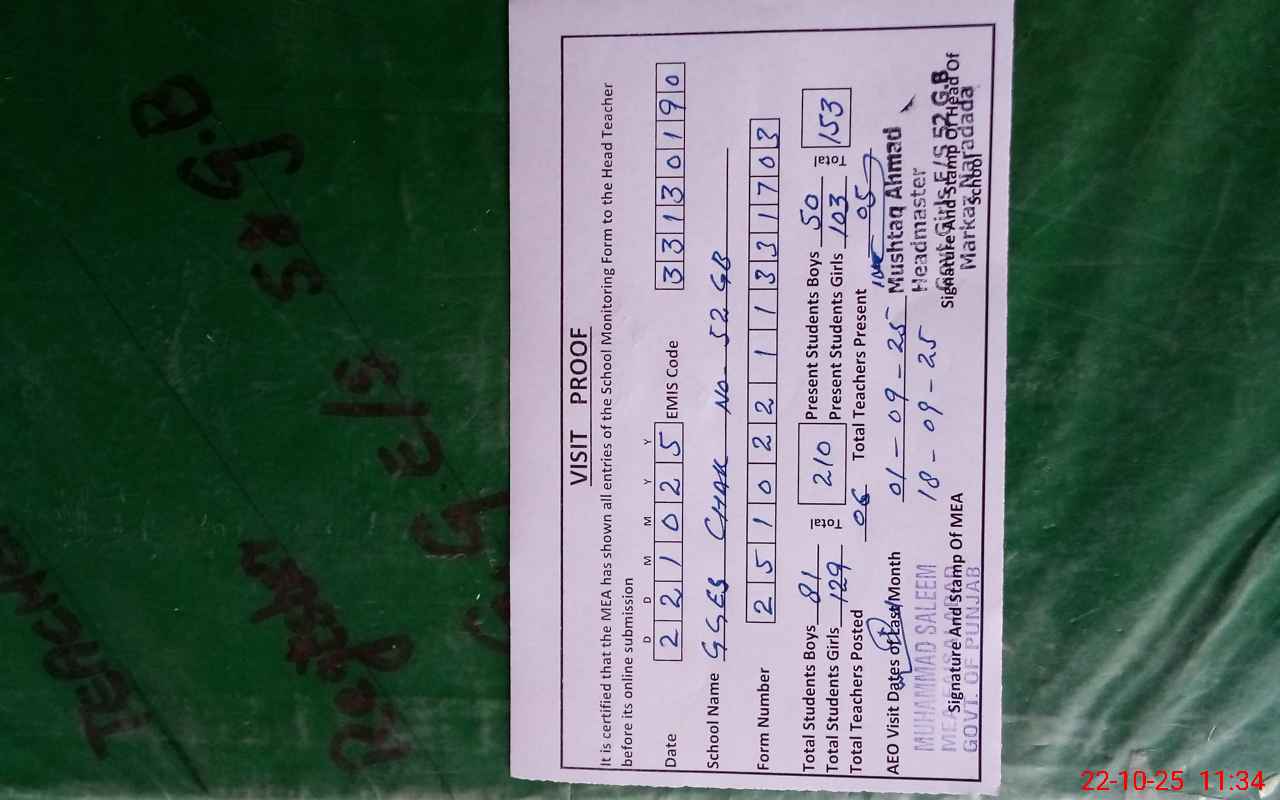 VISIT PROOF
It is certified that the MEA has shown all entries of the School Monitoring Form to the Head Teacher
before its online submission
D D M M Y Y
Date 2 2 1 0 2 5 EMIS Code 3 3 1 3 0 1 9 0
School Name GGES CHAK NO. 52 GB
Form Number 2 5 1 0 2 2 1 1 3 3 1 7 0 3
Total Students Boys 81 Total 210 Present Students Boys 50 Total 153
Total Students Girls 129 Present Students Girls 103
Total Teachers Posted 06 Total Teachers Present 05
AEO Visit Dates of Last Month 01-09-25
18-09-25
Mushtaq Ahmad
Headmaster
Govt Girls E/S 52 G.B
Markaz Naradada
Signature And Stamp Of Head Of
School
MUHAMMAD SALEEM
MEA FAISALABAD
GOVT. OF PUNJAB
Signature And Stamp Of MEA
TEACHER
G.G E/S 58 G.B
22-10-25 11:34